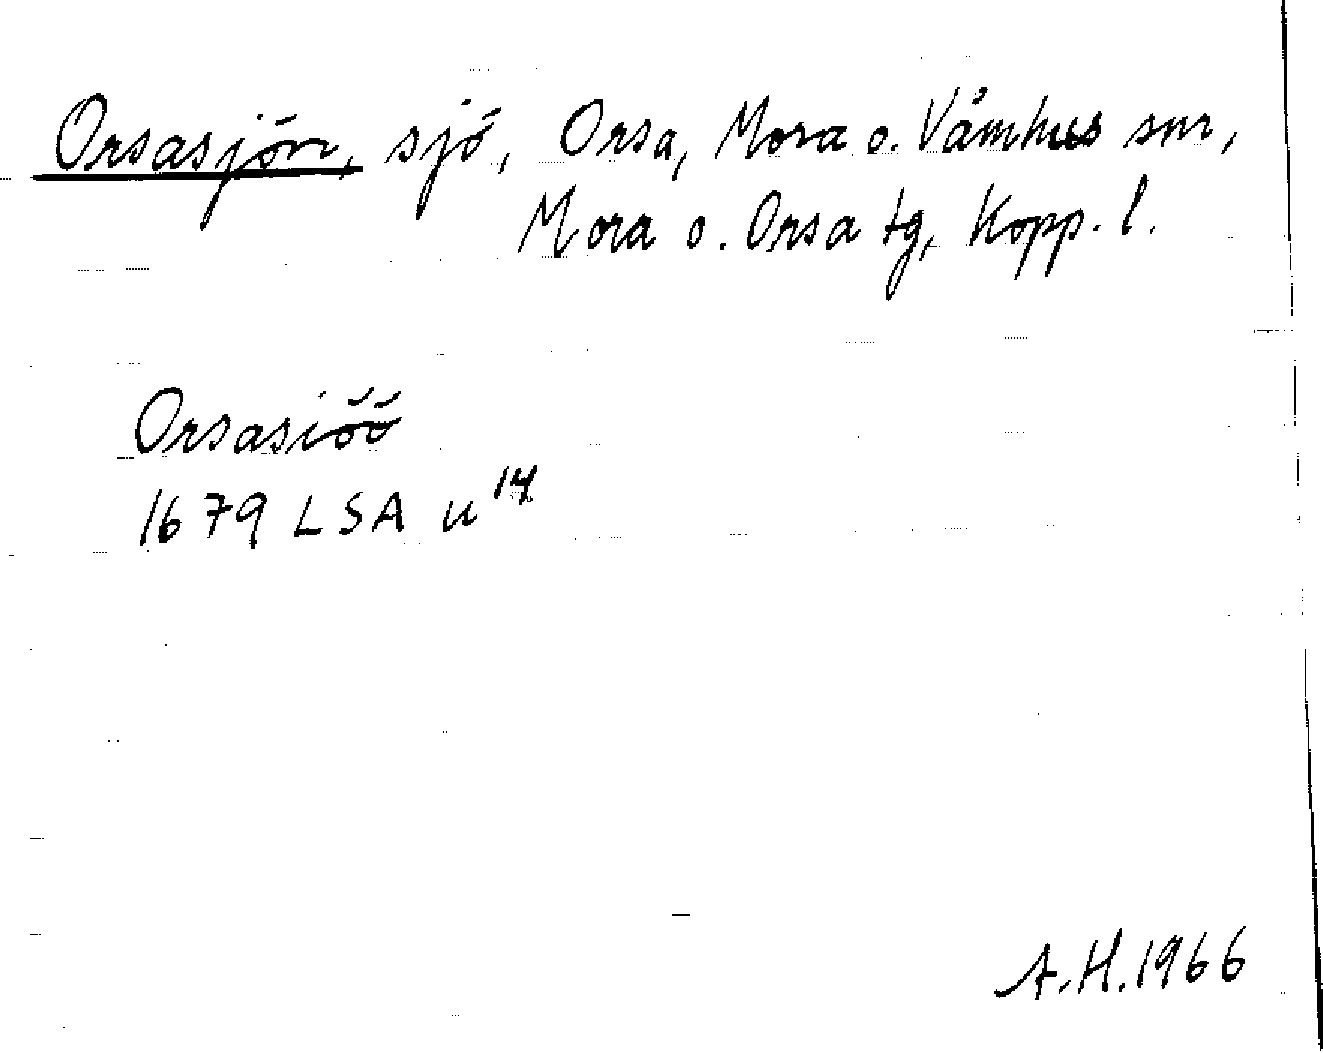 Orsasjön, sjö, Orsa, Mora o. Våmhus snr,
Mora o. Orsa tg, Kopp. l.
Orsasiöö
1679 LSA u¹⁴
A.H. 1966